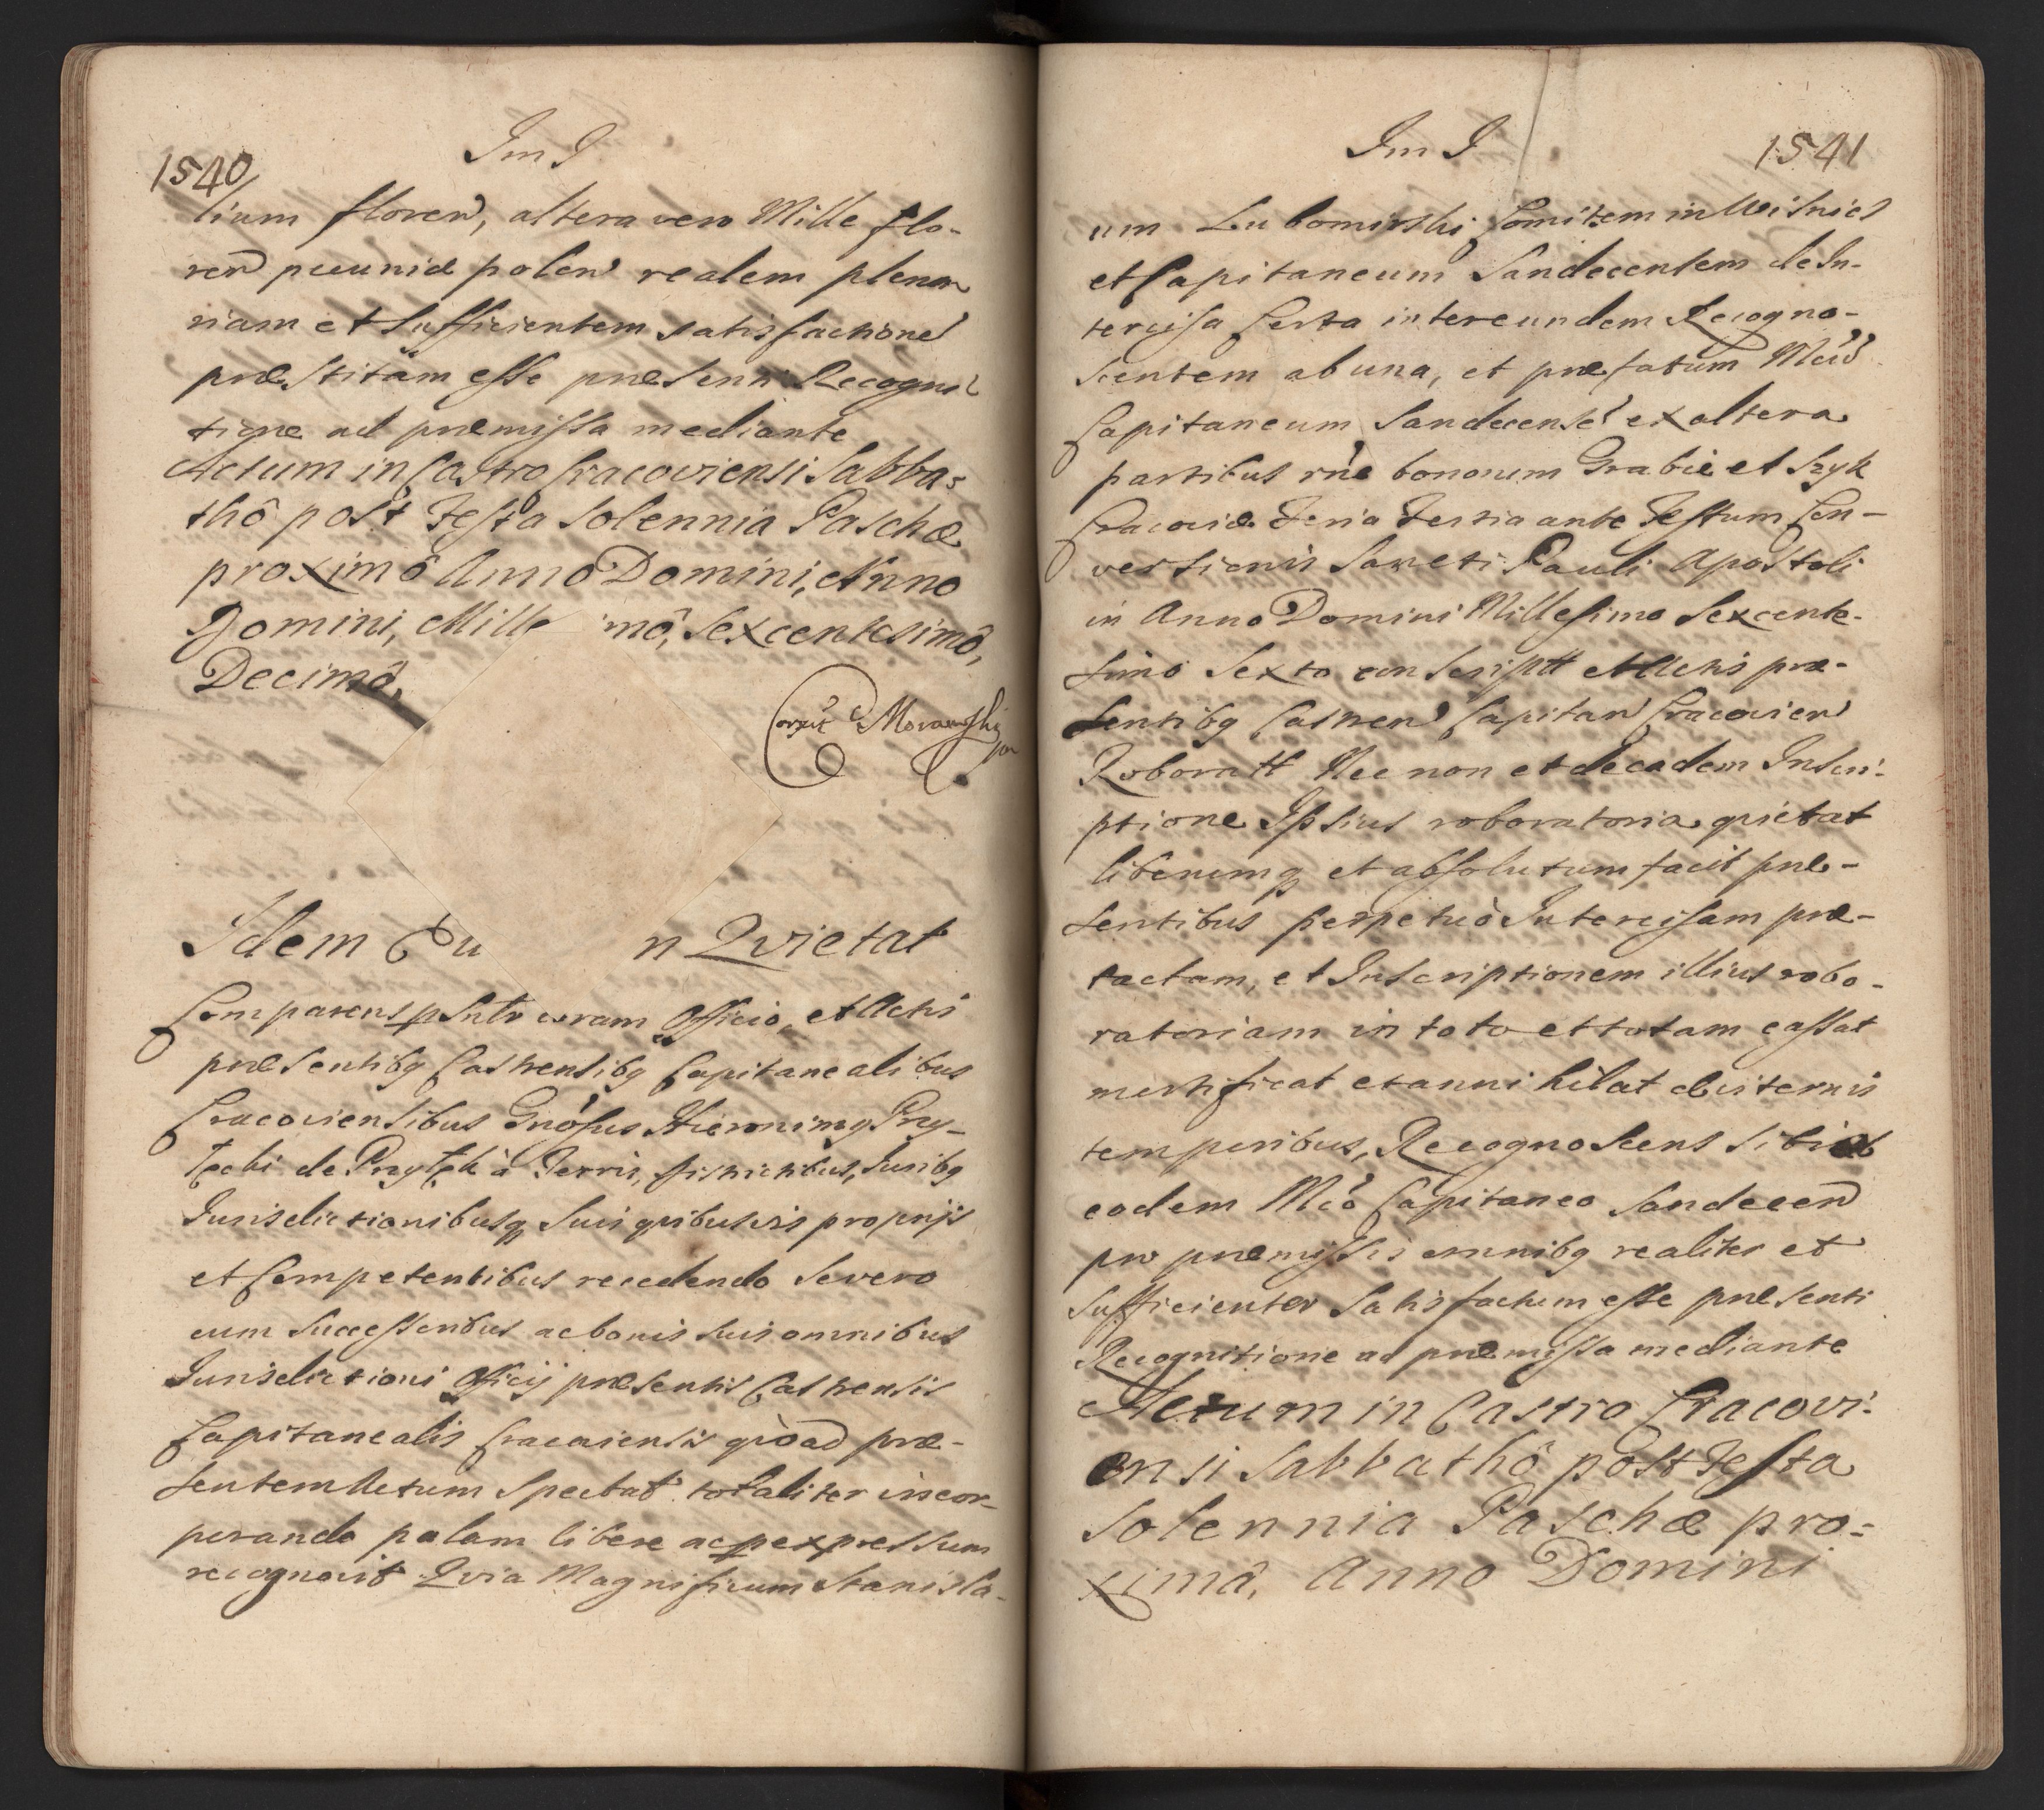 1540
Im J
lium floren, altera vero Mille flo-
ren pecuniæ polen realem plena
riam et sufficientem satisfactione
præstitam esse præsenti Recogni
tione ad præmissa mediante
Actum in Castro Cracoviensi Sabba-
thô post Festa Solennia Paschæ
proximô Anno Domini, Anno
Domini, Mille imô, Sexcentesimô,
Decimô.
Corrxit Morawski
Idem Eu n Qvietat
Comparens coram Officio, et Actis
præsentibq Castrensibq Capitanealibus
Cracoviensibus Gnosus Hieronimq Przy-
łęcki de Przyłęk à Terris, Districtibus, Juribq
Jurisdictionibusq suis quibusvis proprijs
et Competentibus recedendo se vero
cum successoribus ac bonis suis omnibus
Jurisdictioni Officij præsentis Castrensis
Capitanealis Cracoviensis qòad præ-
sentem Actum spectat totaliter incor-
porando palam libere ac p expressum
recognovit Qvia Magnificum Stanisla-
Im J
1541
um Lubomirski Comitem in Wisnicz
et Capitaneum Sandecensem de In-
tercisa Certa inter eundem Recogno-
scentem ab una, et præfatum Mcum
Capitaneum Sandecense ex altera
partibus rne bonorum Grabie et Szyk
Cracoviæ Feria Tertia ante Festum Con-
versionis Sancti Pauli Apostoli
in Anno Domini Millesimo Sexcente-
simo Sexto conscriptt et Actis præ-
sentibq Castren Capitan Cracovien
Roboratt Nec non et de eadem Inscri-
ptione Ipsius roboratoria quietat
liberumq et absolutum facit præ-
sentibus perpetuò Intercisam præ-
tactam, et Inscriptionem illius robo-
ratoriam in toto et totam cassat
mortificat et annihilat æviternis
temporibus, Recognoscens sibi ab
eodem Mco Capitaneo Sandecen
pro præmissis omnibq realiter et
sufficienter satisfactum esse præsenti
Recognitione ad præmissa mediante
Actum in Castro Cracovi-
ensi Sabbathô post Festa
Solennia Paschæ pro-
ximô, Anno Domini